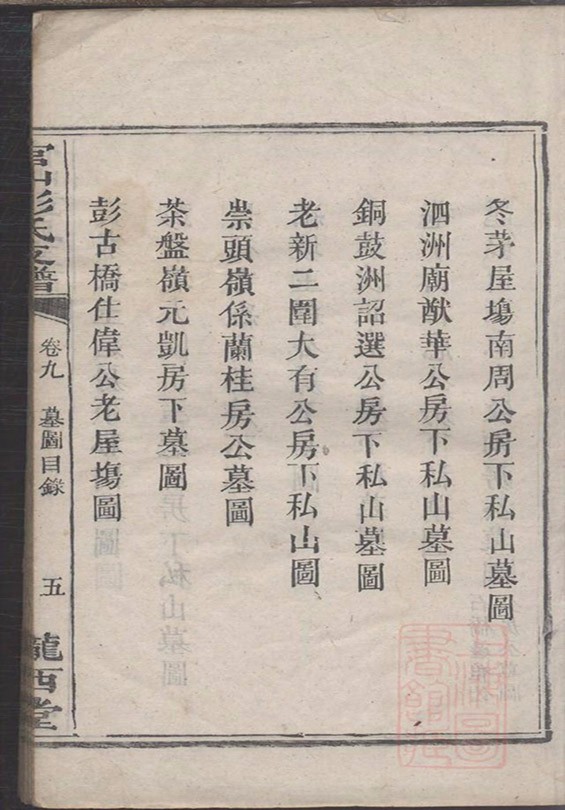 冬茅屋塲南周公房下私山墓圖
泗洲廟猷華公房下私山墓圖
銅鼓洲詔選公房下私山墓圖
老新二圍大有公房下私山圖
崇頭嶺係蘭桂房公墓圖
茶盤嶺元凱房下墓圖
彭古橋仕偉公老屋塲圖
官山彭氏支譜
卷九 墓圖目錄 五
隴西堂